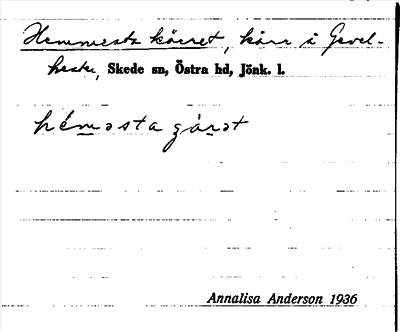 Hemmesta kärret, kärr i Gevel-
hester, Skede sn, Östra hd, Jönk. l.
héməsta çärət
Annalisa Anderson 1936